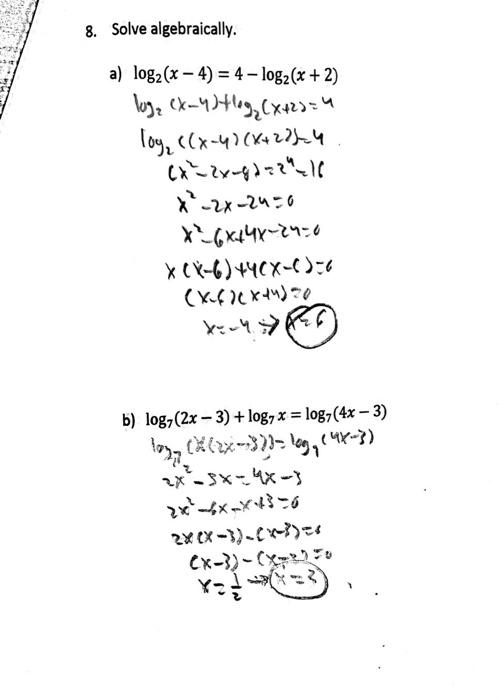 8. Solve algebraically.
a) log₂(x − 4) = 4 − log₂(x + 2)
log₂ (x-4)+log₂(x+2)=4
log₂ ((x-4)(x+2))=4
(x²-2x-8)=2⁴=16
x²-2x-24=0
x²-6x+4x-24=0
x(x-6)+4(x-6)=0
(x-6)(x+4)=0
x=-4 → x=6
b) log₇(2x − 3) + log₇ x = log₇(4x − 3)
log₇ (x(2x-3))=log₇(4x-3)
2x²-3x=4x-3
2x²-6x-x+3=0
2x(x-3)-(x-3)=0
(x-3)-(x-3)=0
x=1/2 → x=3